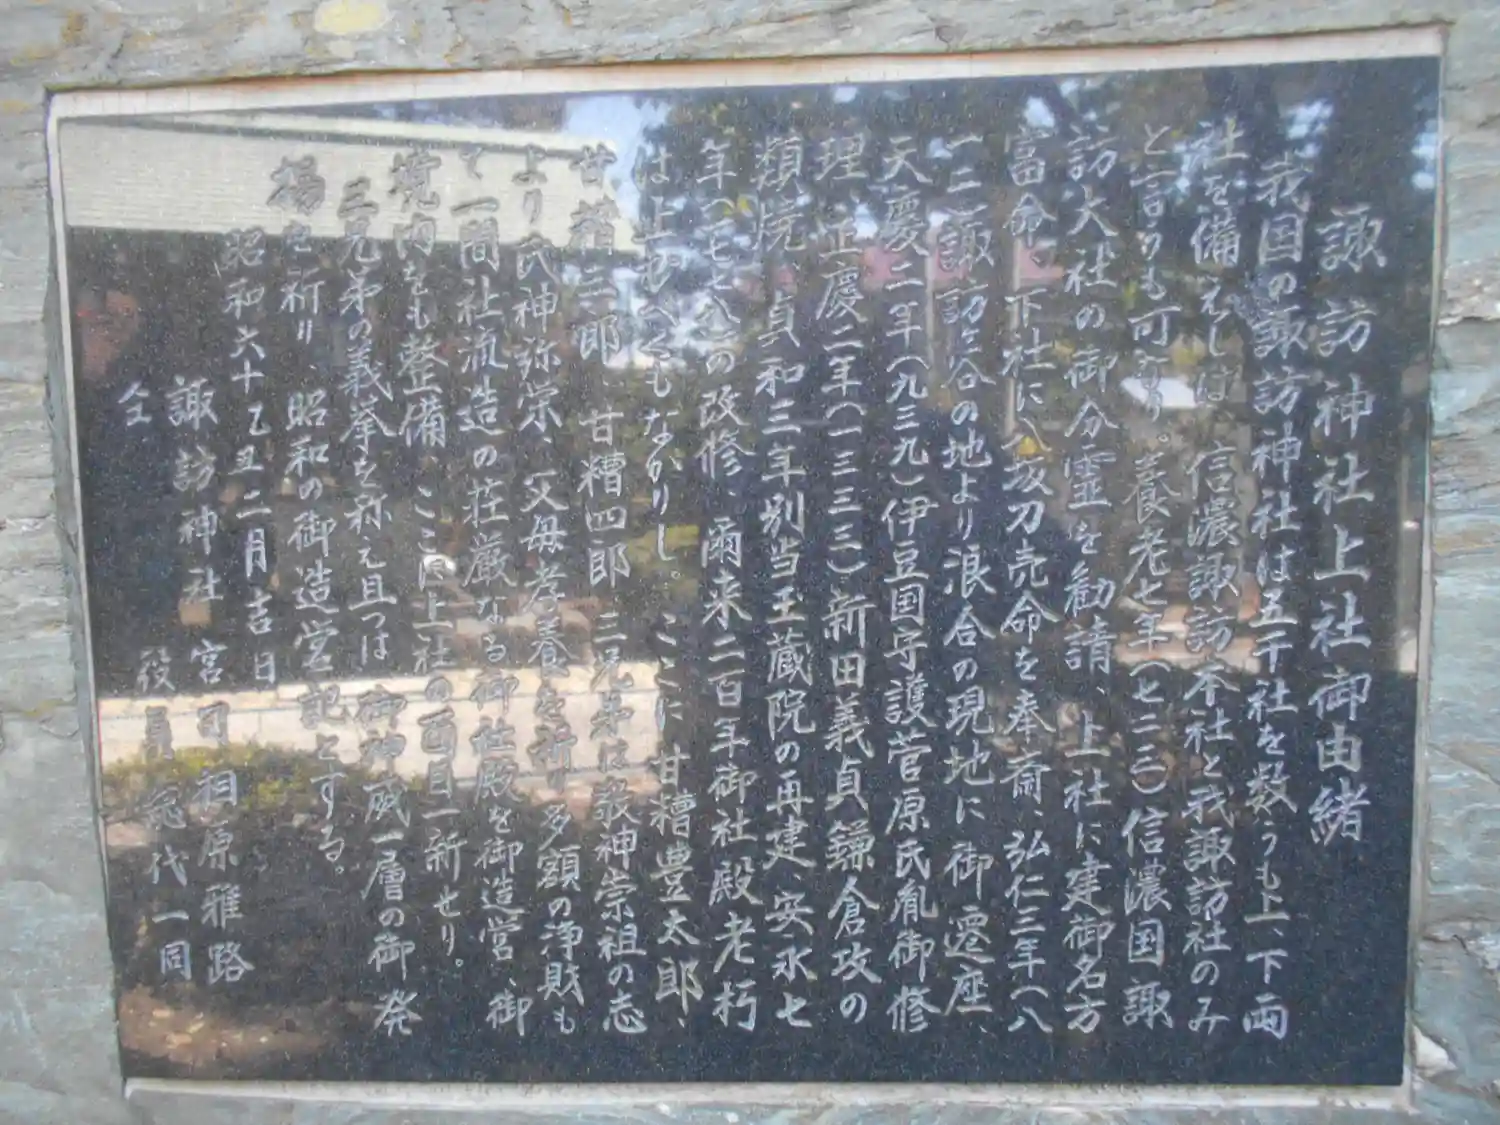 諏訪神社上社御由緒
我国の諏訪神社は五千社を数うも上、下両
社を備えしは、信濃諏訪本社と我諏訪社のみ
と言うも可なり。養老七年(七二三)信濃国諏
訪大社の御分霊を勧請、上社に建御名方
富命、下社に八坂刀売命を奉斎、弘仁三年(八
一二)諏訪ヶ谷の地より浪合の現地に御遷座、
天慶二年(九三九)伊豆国守護菅原氏胤御修
理、正慶二年(一三三三)新田義貞鎌倉攻の
類焼、貞和三年別当玉蔵院の再建、安永七
年(一七七八)の改修、爾来二百年御社殿老朽
は止むべくもなかりし。ここに甘糟豊太郎、
甘糟二郎、甘糟四郎三兄弟は敬神崇祖の志
より氏神弥栄、父母孝養を祈り多額の浄財も
て一間社流造の荘厳なる御社殿を御造営、御
境内をも整備ここに上社の面目一新せり。
三兄弟の義挙を称え且つは御神威一層の御発
揚を祈り、昭和の御造営記とする。
昭和六十乙丑二月吉日
諏訪神社 宮司 相原雅路
仝 役員総代一同